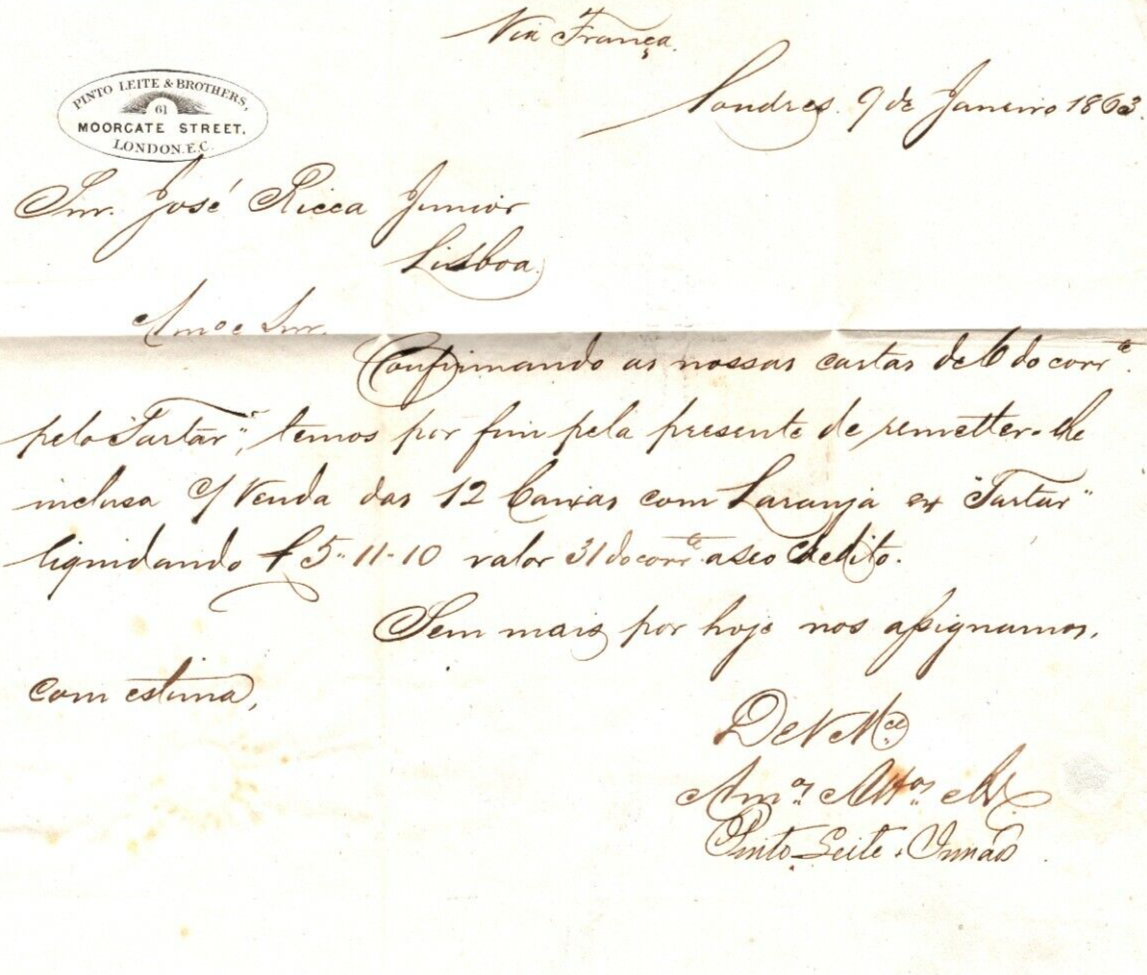 Via França.
PINTO LEITE & BROTHERS,
61
MOORGATE STREET,
LONDON.E.C.
Londres. 9 de Janeiro 1863.
Snr. José Ricca Junior
Lisboa.
Amo e Snr.
Confirmando as nossas cartas de 6 do corrte.
pelo "Tartar", temos por fim pela presente de remetter-lhe
inclusa c/ Venda das 12 Caixas com Laranja ex "Tartar"
liquidando £5"11-10 valor 31 do corrte a seo Credito.
Sem mais por hoje nos assignamos,
com estima,
De V Mce
Amos Attos
Pinto Leite & Irmãos